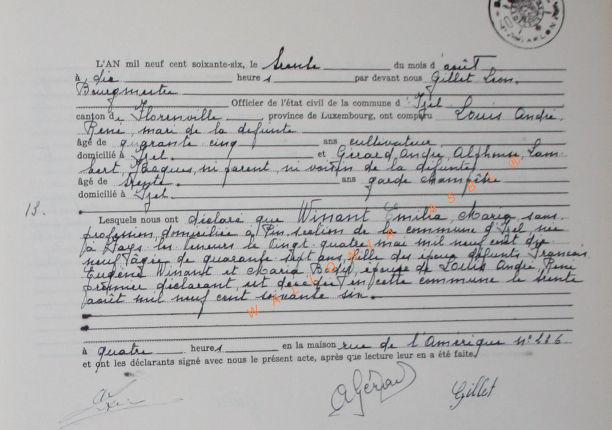 L'AN mil neuf cent soixante-six, le trente du mois d'août
à dix heures par devant nous Gillet Léon.
Bourgmestre
Officier de l'état civil de la commune d'Izel
canton de Florenville, province de Luxembourg, ont comparu Louis André
René, mari de la défunte
âgé de quarante cinq ans cultivateur
domicilié à Izel. et Gérard André, Alphonse, Lam-
bert, Jacques, ni parent, ni voisin de la défunte
âgé de trente ans garde champêtre
domicilié à Izel.
13.
Lesquels nous ont déclaré que Winant Emilia Maria sans
profession domiciliée à Pin section de la commune d'Izel née
à les le vingt quatre mai mil neuf cent dix
neuf âgée de quarante sept ans fille des époux défunts François
Eugène Winant et Maria épouse de Louis André René
premier déclarant, est décédée en cette commune le trente
août mil neuf cent soixante six.
à quatre heures en la maison rue de l'Amérique n° 226
et ont les déclarants signé avec nous le présent acte, après que lecture leur en a été faite.
AGérard
Gillet